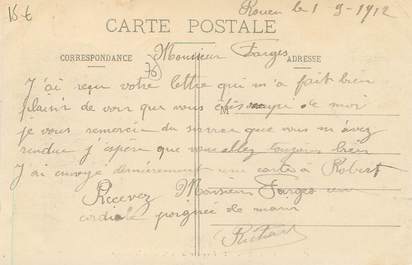 15 €
Rouen le 1-9-1912
CARTE POSTALE
Monsieur Farges
CORRESPONDANCE
ADRESSE
76
J'ai reçu votre lettre qui m'a fait bien
plaisir de voir que vous de moi
M
je vous remercie du que vous m'avez
rendue j'espère que vous allez toujours bien
J'ai envoyé dernièrement une carte à Robert
Recevez Monsieur Farges une
cordiale poignée de main